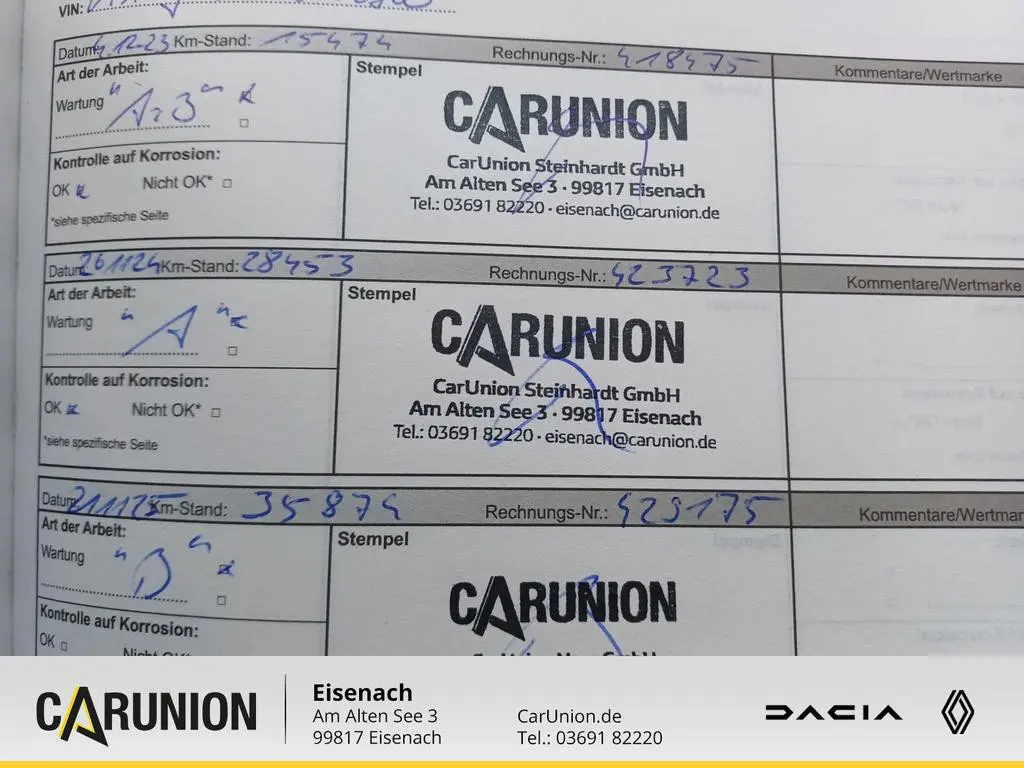 VIN:
Datum 4.12.23 Km-Stand: 15474 Rechnungs-Nr.: 418475 Kommentare/Wertmarke
Art der Arbeit: Stempel
Wartung
CARUNION
CarUnion Steinhardt GmbH
Am Alten See 3 · 99817 Eisenach
Tel.: 03691 82220 · eisenach@carunion.de
Kontrolle auf Korrosion:
OK Nicht OK*
*siehe spezifische Seite
Datum 261124 Km-Stand: 28453 Rechnungs-Nr.: 423723 Kommentare/Wertmarke
Art der Arbeit: Stempel
Wartung "A"
CARUNION
CarUnion Steinhardt GmbH
Am Alten See 3 · 99817 Eisenach
Tel.: 03691 82220 · eisenach@carunion.de
Kontrolle auf Korrosion:
OK Nicht OK*
*siehe spezifische Seite
Datum 211125 Km-Stand: 35874 Rechnungs-Nr.: 429175 Kommentare/Wertmar
Art der Arbeit: Stempel
Wartung "B"
CARUNION
Kontrolle auf Korrosion:
OK
CARUNION
Eisenach
Am Alten See 3
99817 Eisenach
CarUnion.de
Tel.: 03691 82220
DACIA